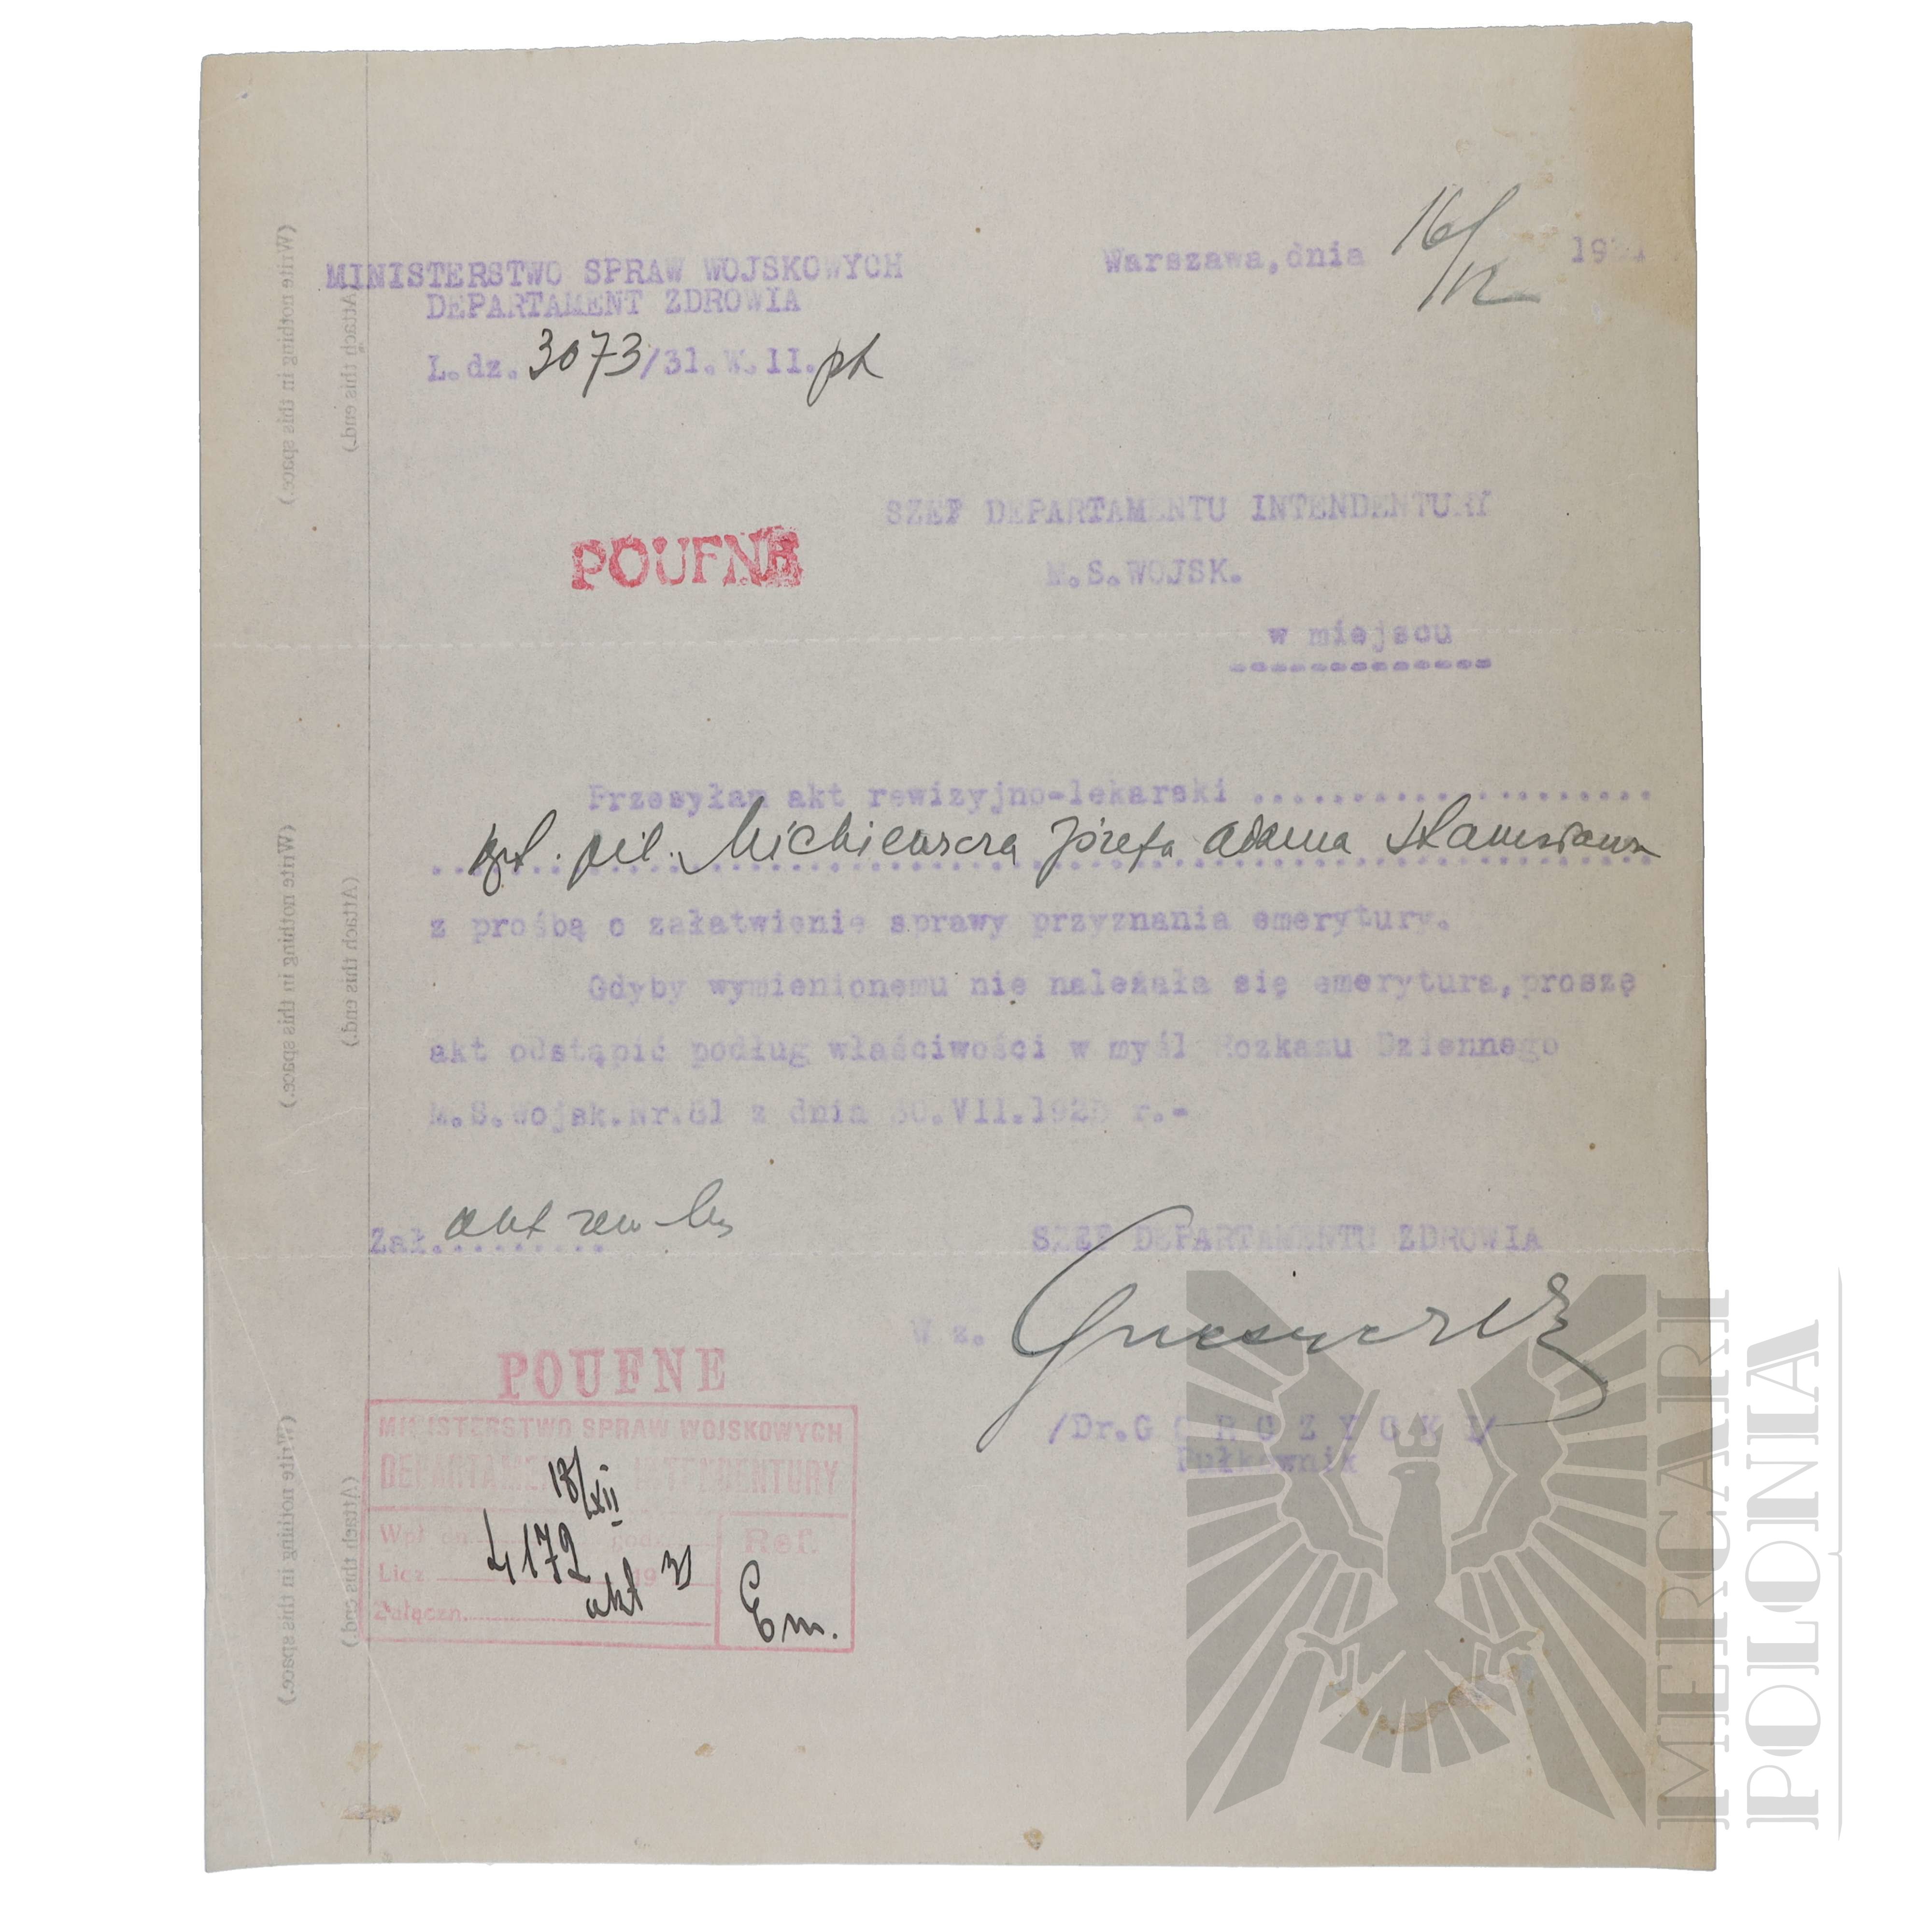 MINISTERSTWO SPRAW WOJSKOWYCH
DEPARTAMENT ZDROWIA
L.dz. 3073/31.W.II.
Warszawa,dnia 16/XII 1931
SZEF DEPARTAMENTU INTENDENTURY
M.S.WOJSK.
w miejscu
POUFNE
Przesyłam akt rewizyjno-lekarski ....................
pil. Michiewicza Józefa Adama Stanisława
z prośbą o załatwienie sprawy przyznania emerytury.
Gdyby wymienionemu nie należała się emerytura,proszę
akt odstąpić podług właściwości w myśl Rozkazu Dziennego
M.S.Wojsk.Nr.81 z dnia 30.VII.1928 r.-
Zał. akt rew-lek
SZEF DEPARTAMENTU ZDROWIA
W z.
/Dr.G O R C Z Y C K I/
Pułkownik
POUFNE
MINISTERSTWO SPRAW WOJSKOWYCH
DEPARTAMENT INTENDENTURY
Wpł dn. 18/XII godz.
Ref.
Licz. 4172 19
Załączn. akt
Em.
(Write nothing in this space.)
(Attach this end.)
(Write nothing in this space.)
(Attach this end.)
(Write nothing in this space.)
(Attach this end.)
MERCARI
POLONIA